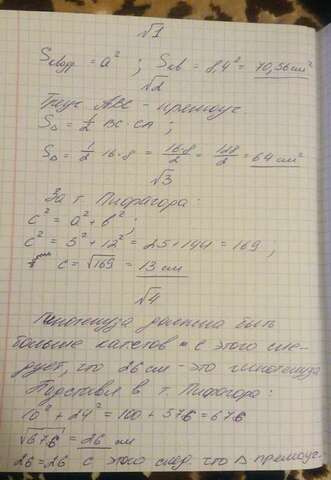 √1
Sквадр = a² ; Sкв = 8,4² = 70,56 см²
√2
Треуг ABC - прямоуг.
S∆ = 1/2 BC·CA ;
S∆ = 1/2 16·8 = 16·8/2 = 128/2 = 64 см²
√3
За т. Пифагора :
c² = a² + b² ;
c² = 5² + 12² = 25 + 144 = 169 ;
c = √169 = 13 см
√4
Гипотенуза должна быть
больше катетов с этого сле-
дует, что 26 см - это гипотенуза
Подставил в т. Пифагора :
10² + 24² = 100 + 576 = 676
√676 = 26 см
26 = 26 с этого след. что ∆ прямоуг.